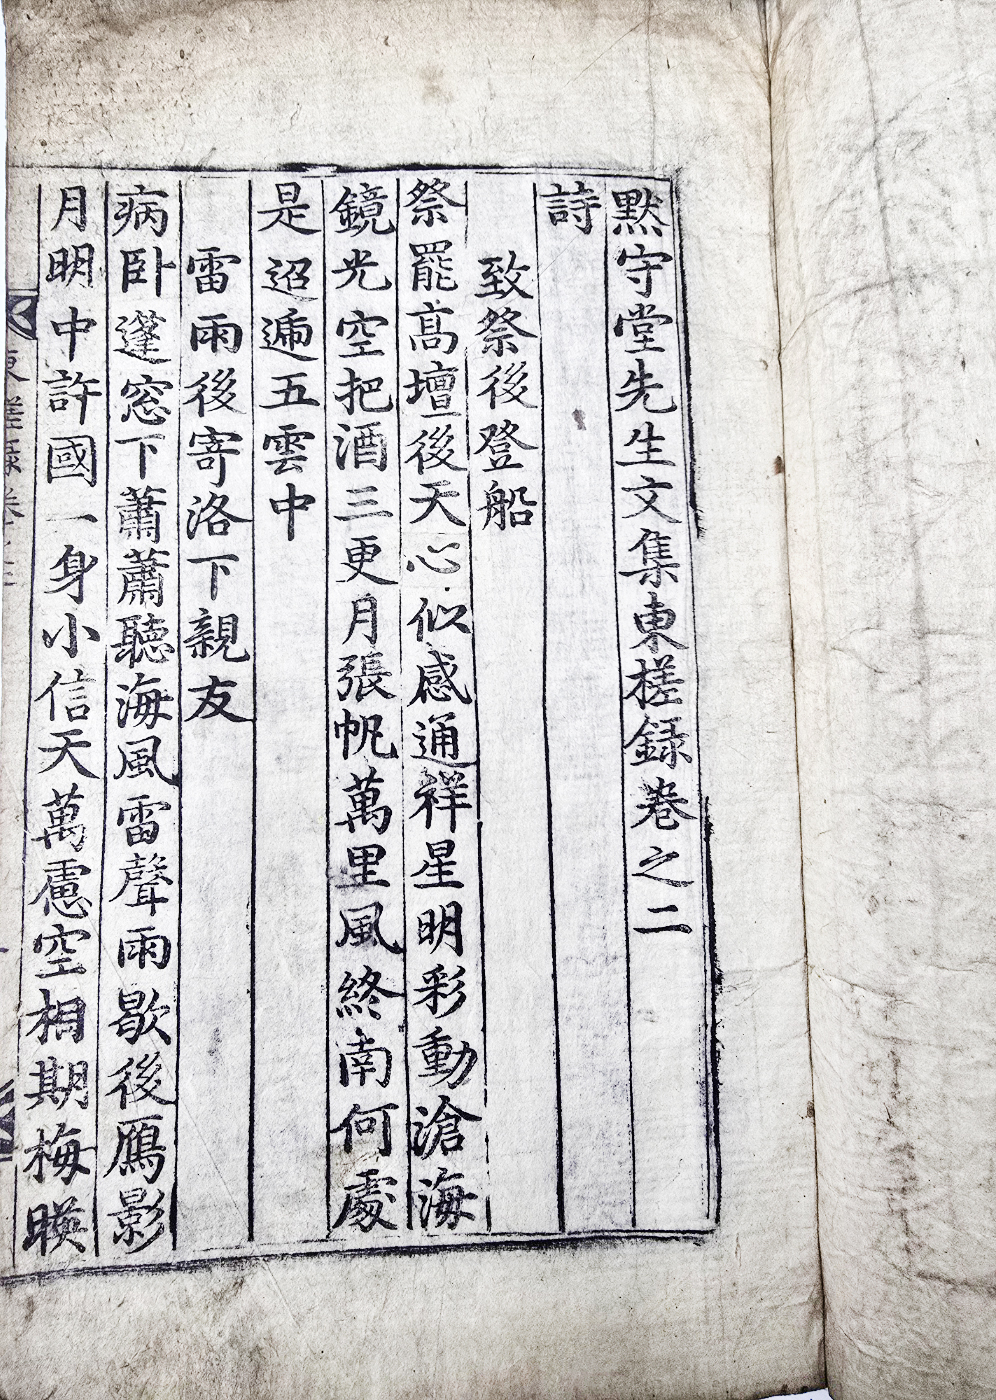 黙守堂先生文集東槎録巻之二
詩
致祭後登船
祭罷高壇後天心似感通祥星明彩動滄海
鏡光空把酒三更月張帆萬里風終南何處
是迢遞五雲中
雷雨後寄洛下親友
病卧蓬窓下蕭蕭聽海風雷聲雨歇後鴈影
月明中許國一身小信天萬慮空相期梅暎
東槎録巻之二